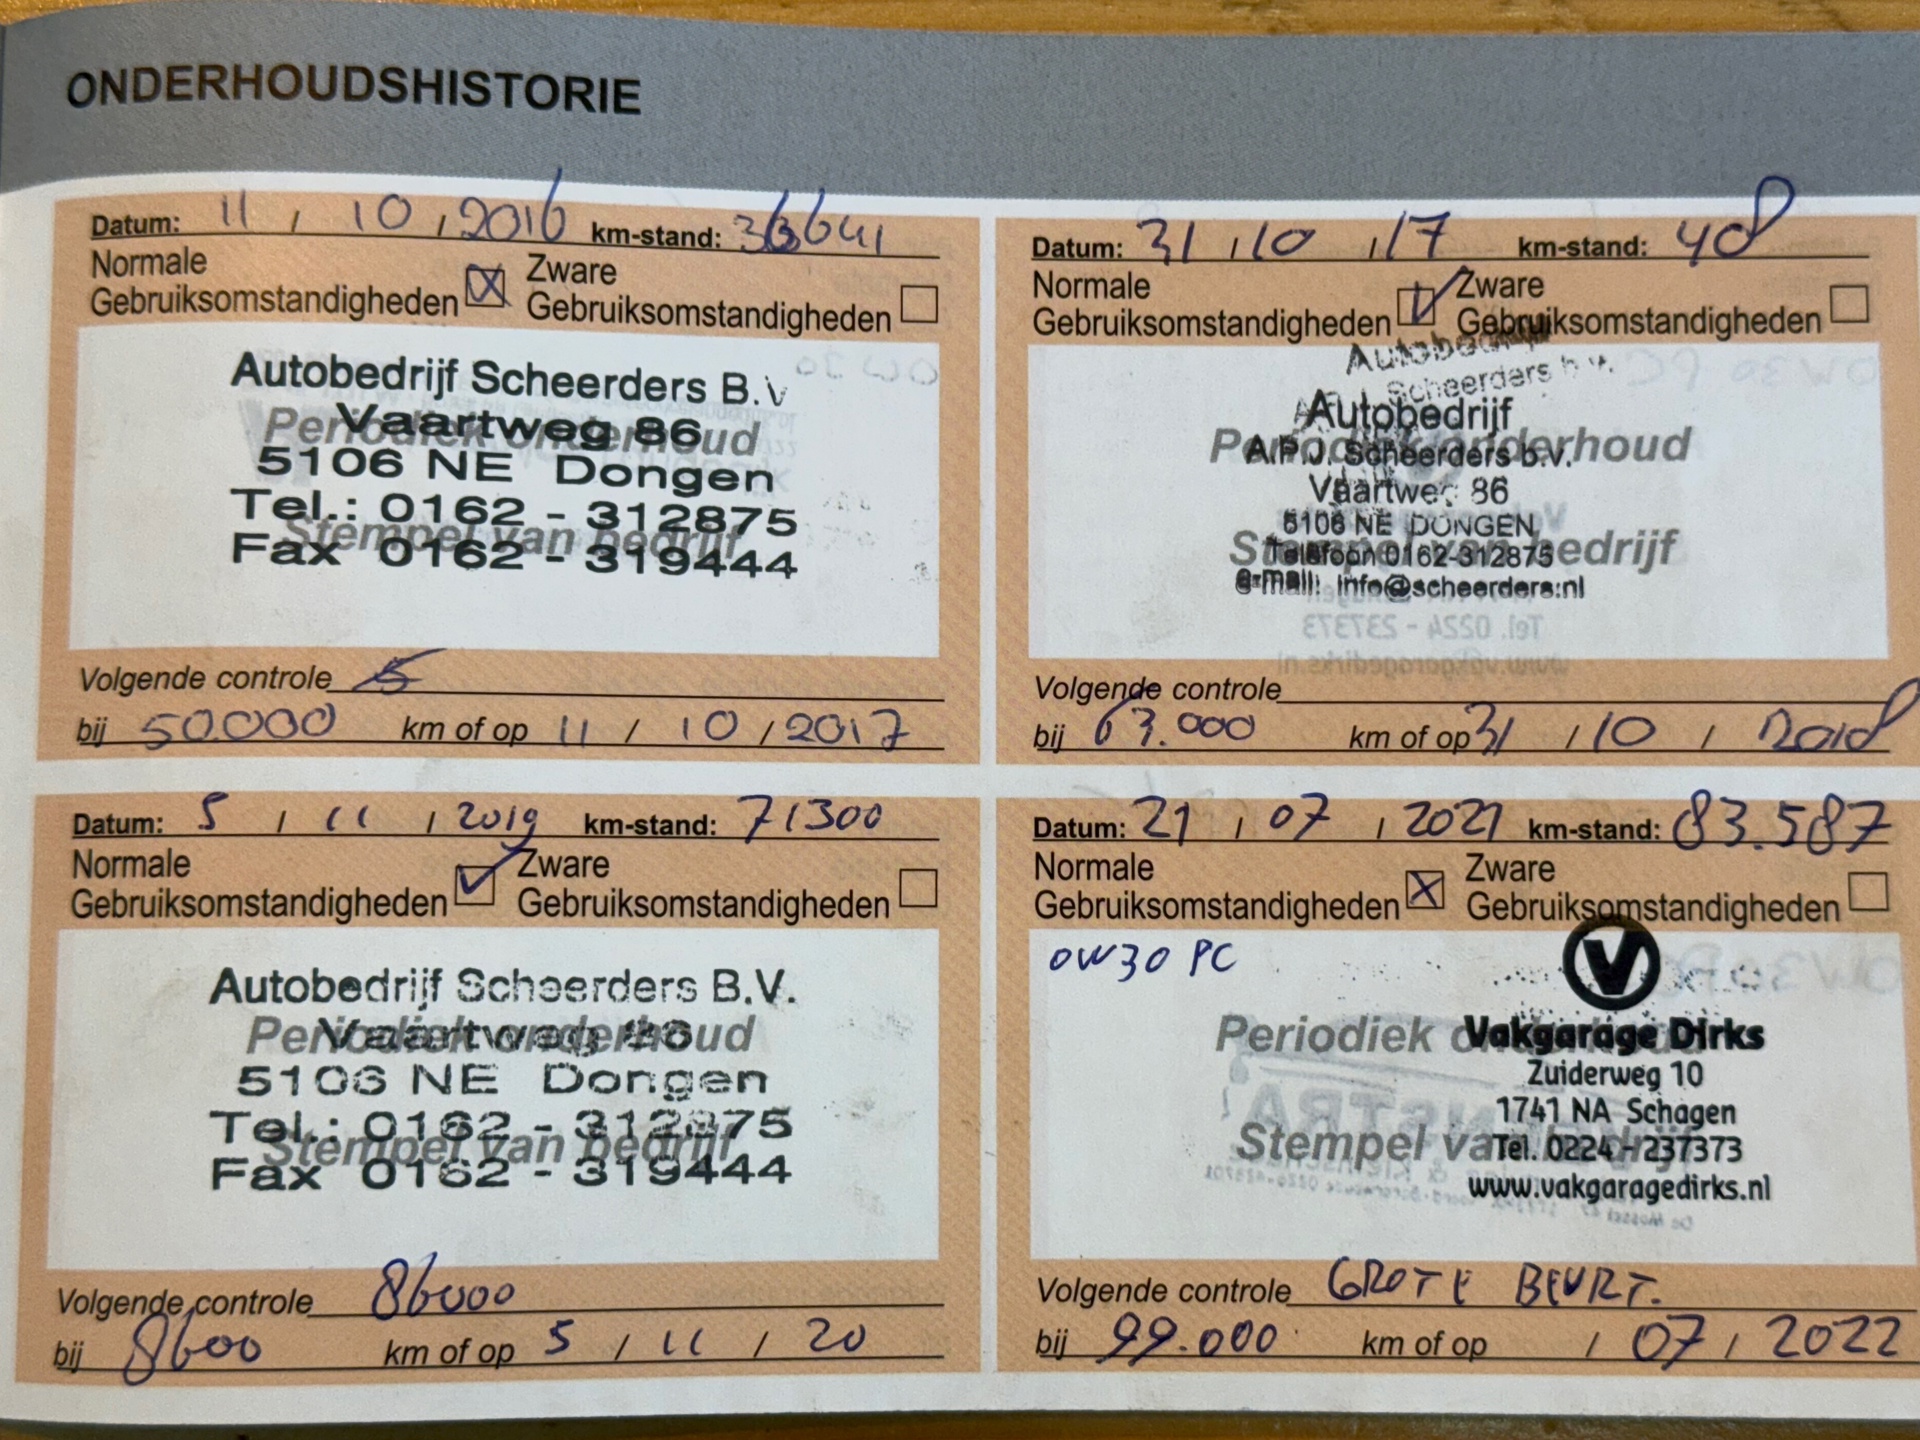 ONDERHOUDSHISTORIE
Datum: 11 / 10 / 2016 km-stand: 36641
Normale Gebruiksomstandigheden Zware Gebruiksomstandigheden
Autobedrijf Scheerders B.V
Vaartweg 86
Periodiek onderhoud
5106 NE Dongen
Tel.: 0162 - 312875
Stempel van bedrijf
Fax 0162 - 319444
Volgende controle 5
bij 50.000 km of op 11 / 10 / 2017
Datum: 31 / 10 / 17 km-stand: 48
Normale Gebruiksomstandigheden Zware Gebruiksomstandigheden
Autobedrijf
Scheerders b.v.
Autobedrijf
Periodiek onderhoud
A.P.J. Scheerders b.v.
Vaartweg 86
5106 NE DONGEN
Stempel van bedrijf
Telefoon 0162-312875
e-mail: info@scheerders.nl
Volgende controle
bij 63.000 km of op 31 / 10 / 2018
Datum: 5 / 11 / 2019 km-stand: 71300
Normale Gebruiksomstandigheden Zware Gebruiksomstandigheden
Autobedrijf Scheerders B.V.
Vaartweg 86
Periodiek onderhoud
5106 NE Dongen
Tel.: 0162 - 312875
Stempel van bedrijf
Fax 0162 - 319444
Volgende controle 86000
bij 8600 km of op 5 / 11 / 20
Datum: 21 / 07 / 2021 km-stand: 83.587
Normale Gebruiksomstandigheden Zware Gebruiksomstandigheden
0W30 PC
V
Periodiek onderhoud
Vakgarage Dirks
Zuiderweg 10
1741 NA Schagen
Stempel van bedrijf
Tel. 0224 - 237373
www.vakgaragedirks.nl
Volgende controle GROTE BEURT.
bij 99.000 km of op / 07 / 2022